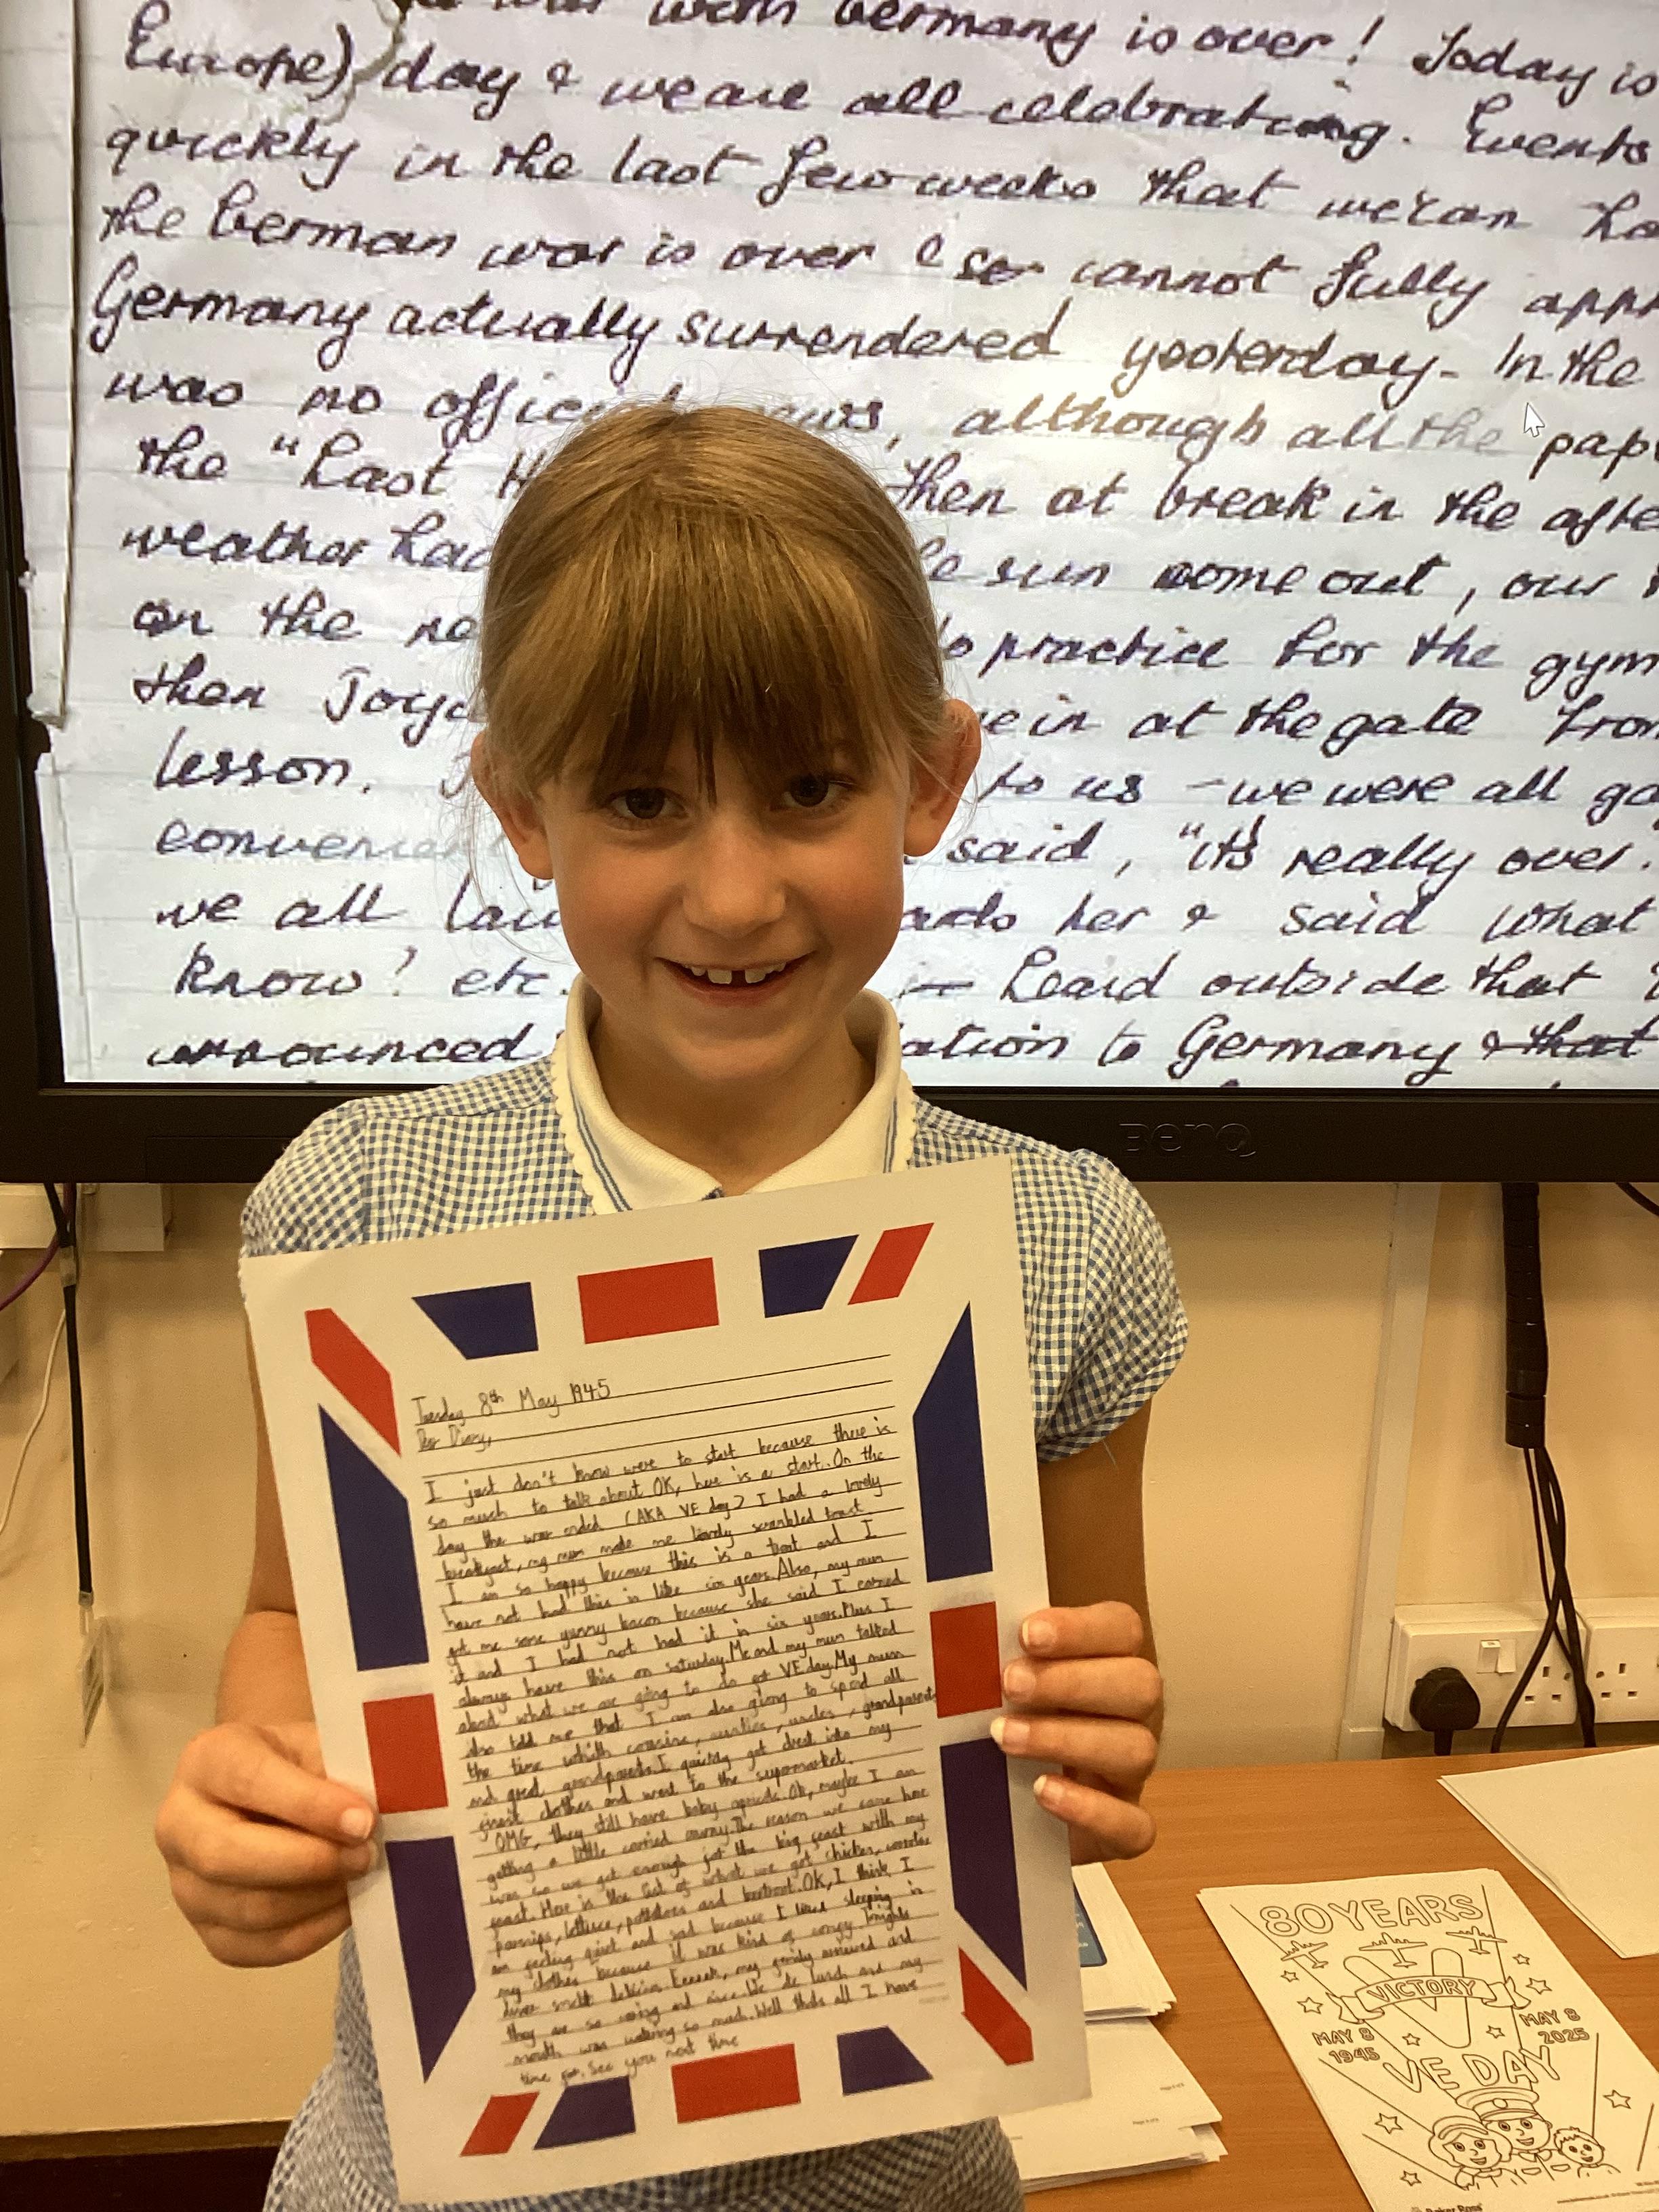 war with Germany is over! Today is
Europe) day & we are all celebrating. Events
quickly in the last few weeks that we can
the German war is over & so cannot fully
Germany actually surrendered yesterday - In the
was no news, although all the
the "Last then at break in the
weather had sun come out, our
on the practice for the gym
then in at the gate from
lesson. to us - we were all
said, "it's really over.
we all her & said what
know! etc. heard outside that
announced to Germany & that
BenQ
Tuesday 8th May 1945
Dear Diary,
I just don't know were to start because there is
so much to talk about OK, here is a start. On the
day the war ended (AKA VE day) I had a lovely
breakfast, my mum made me lovely scrambled toast
I am so happy because this is a treat and I
have not had this in like six years. Also, my mum
got me some yummy bacon because she said I earned
it and I had not had it in six years. Plus I
always have this on saturday. Me and my mum talked
about what we are going to do of VE day. My mum
also told me that I am also going to spend all
the time whith cousins, aunties, uncles, grandparents
and great grandparents. I quickly got drest into my
clothes and went to the supermarket.
OMG, they still have baby Oh, maybe I am
getting a little carried away. The reason we came here
was so we got enough for the big feast with my
Here is the list of what we got chicken,
parsnips, lettuce, potatoes and beetroot. OK, I think I
am feeling quiet and sad because I sleeping in
my clothes because it was kind of
diner smelt delicious. my family arrived and
they are so caring and nice. We ate lunch and my
mouth was watering so much. Well thats all I have
time for. See you next time
80 YEARS
VICTORY
MAY 8
1945
MAY 8
2025
VE DAY
Baker Ross